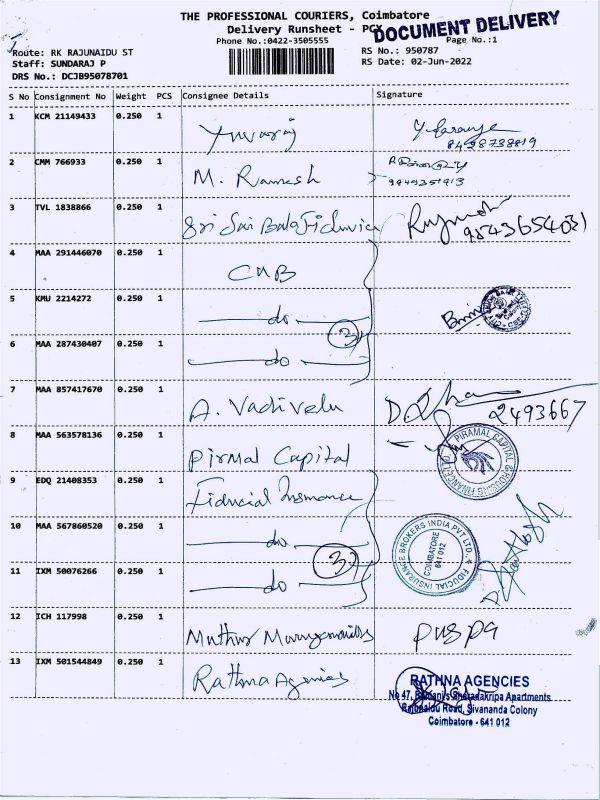 THE PROFESSIONAL COURIERS, Coimbatore
Delivery Runsheet - PCX
DOCUMENT DELIVERY
Phone No.:0422-3505555
Page No.:1
Route: RK RAJUNAIDU ST
RS No.: 950787
Staff: SUNDARAJ P
RS Date: 02-Jun-2022
DRS No.: DCJB95078701
S No Consignment No Weight PCS Consignee Details Signature
1 KCM 21149433 0.250 1 Yuvaraj
8428738819
2 CMM 766933 0.250 1 M. Ramesh
3 TVL 1838866 0.250 1 Sri Sai Bala 9543654031
4 MAA 291446070 0.250 1 CUB
5 KMU 2214272 0.250 1 do
3
6 MAA 287430407 0.250 1 do
7 MAA 857417670 0.250 1 A. Vadivelu 2493667
8 MAA 563578136 0.250 1 Pirmal Capital
PIRAMAL CAPITAL & HOUSING FINANCE
9 EDQ 21408353 0.250 1 Fiducial Insurance
10 MAA 567860520 0.250 1 do
FIDUCIAL INSURANCE BROKERS INDIA PVT LTD.,
COIMBATORE
641 012
3
11 IXM 50076266 0.250 1 do
12 ICH 117998 0.250 1 Muthur pugpa
13 IXM 501544849 0.250 1 Rathna Agencies
RATHNA AGENCIES
No 47, Sharadakripa Apartments
Road, Sivananda Colony
Coimbatore - 641 012